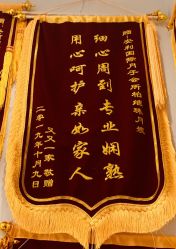 赠安利国际月子会所柏继联月嫂
细心周到专业娴熟
用心呵护亲如家人
义义一家 敬赠
二零一九年十月九日